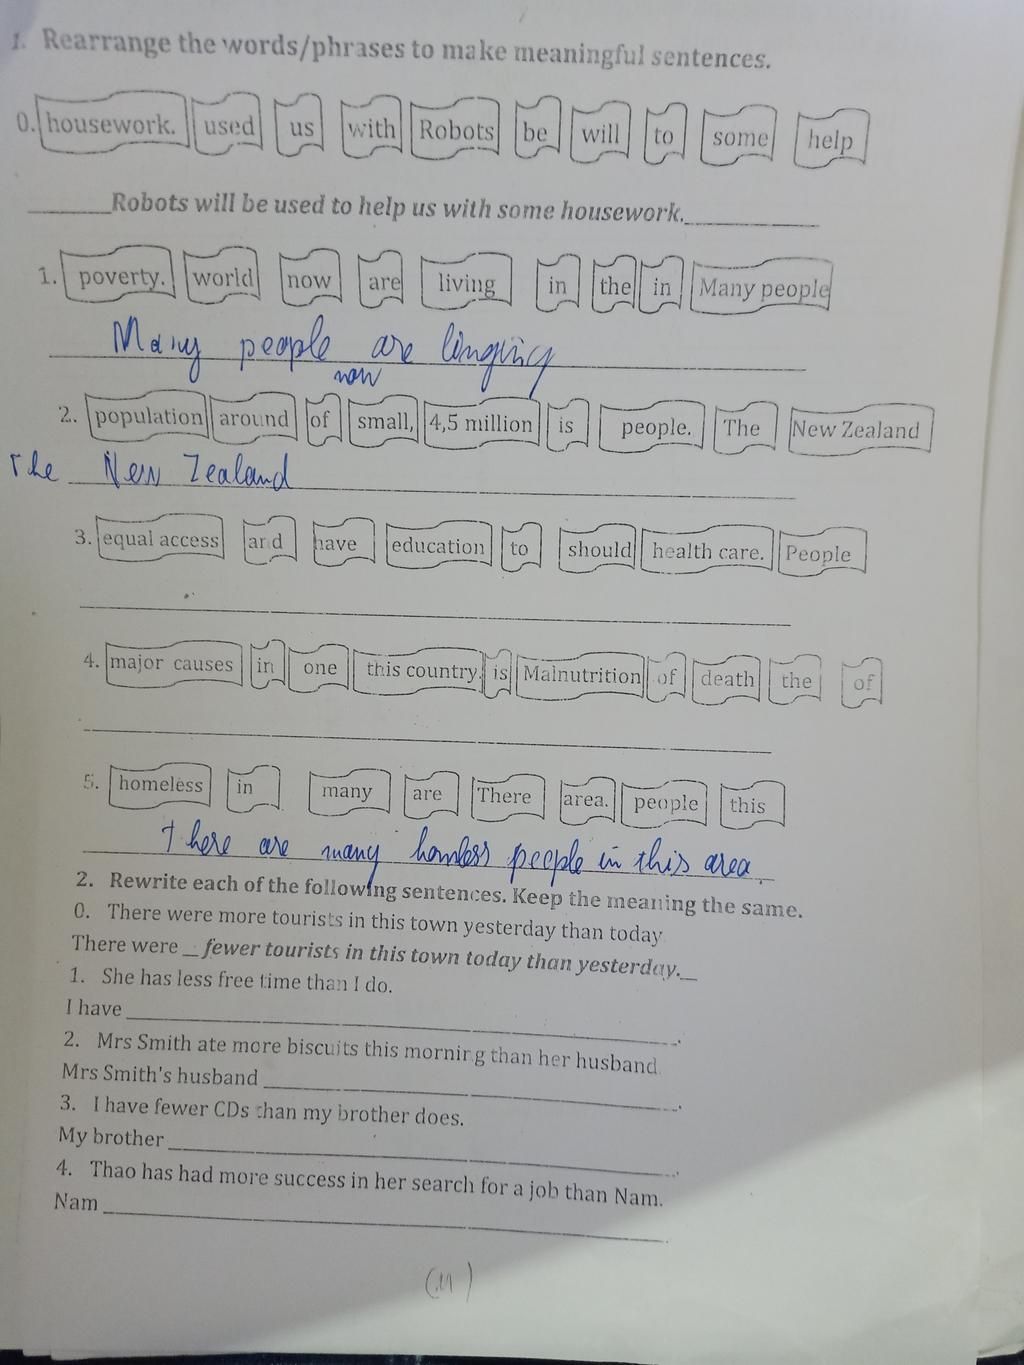 1. Rearrange the words/phrases to make meaningful sentences.
0. housework. used us with Robots be will to some help
______Robots will be used to help us with some housework.__________
1. poverty. world now are living in the in Many people
Many people are linging
now
2. population around of small, 4,5 million is people. The New Zealand
The New Zealand
3. equal access and have education to should health care. People
4. major causes in one this country. is Malnutrition of death the of
5. homeless in many are There area. people this
There are many homless people in this area.
2. Rewrite each of the following sentences. Keep the meaning the same.
0. There were more tourists in this town yesterday than today
There were _ fewer tourists in this town today than yesterday._
1. She has less free time than I do.
I have ______________________________.
2. Mrs Smith ate more biscuits this morning than her husband.
Mrs Smith's husband ______________________________.
3. I have fewer CDs than my brother does.
My brother ______________________________.
4. Thao has had more success in her search for a job than Nam.
Nam ______________________________.